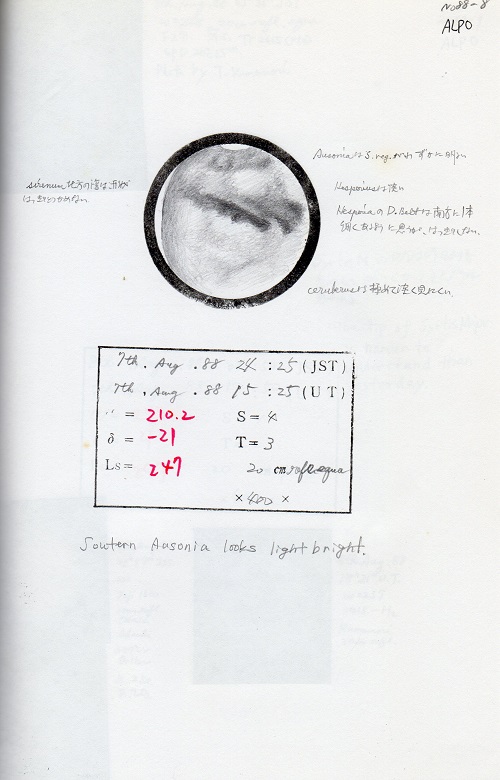 No88-8
ALPO
Ausonia は S. reg. がわずかに明るい
Sirenum 地方の濃い
はっきりとつかめない
Hesperiusは濃い
Hesperia の D. Belt は南方に1本
細くあるように思うが、はっきりしない。
cerberusは極めて淡く見にくい。
7th . Aug . 88 24 : 25 (JST)
7th . Aug . 88 15 : 25 (U T)
= 210.2 S = 4
δ = -21 T = 3
Ls = 247 20 cm
× 400 ×
Sowtern Ausonia looks light bright.